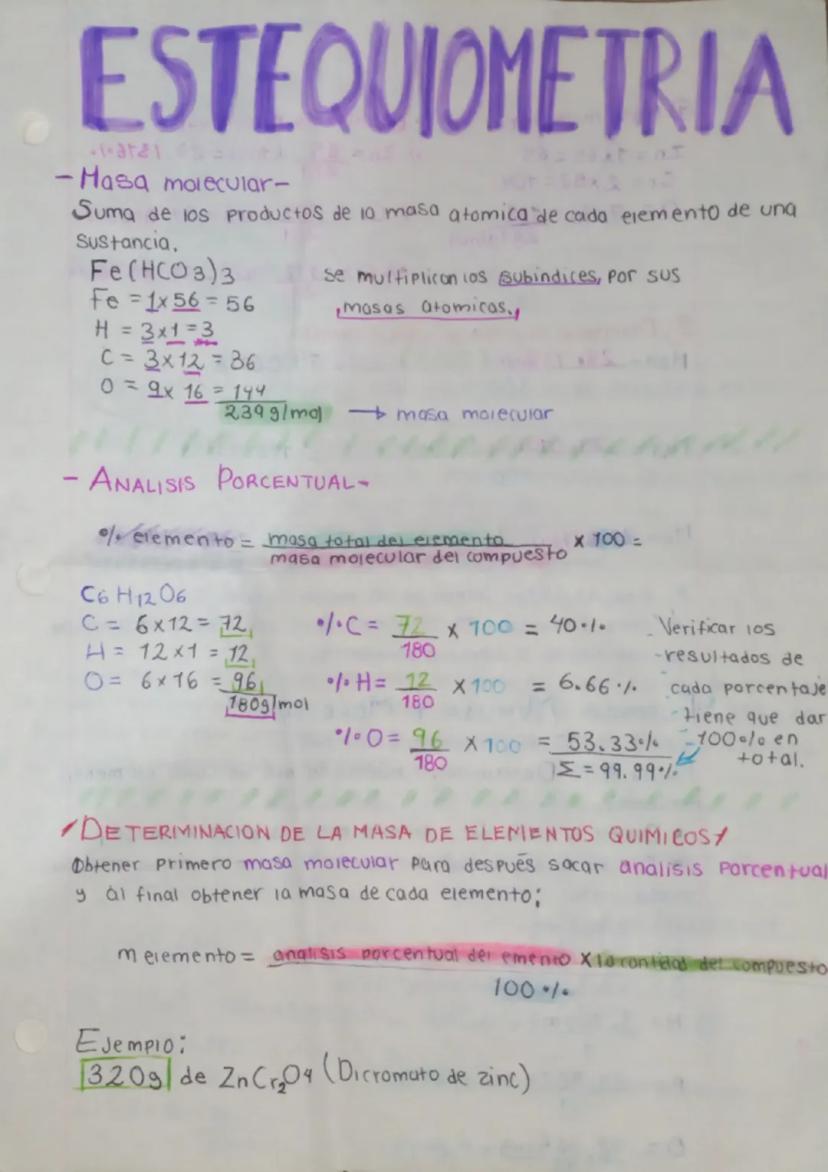 ESTEQUIOMETRIA
-Masa molecular-
Suma de los productos de la masa atomica de cada elemento de una
sustancia.
Fe(HCO3)3
se multiplican los subindices, por sus
masas atomicas.
Fe = 1x56 = 56
H = 3x1 = 3
C = 3x12 = 36
O = 9x 16 = 144
239g/mol → masa molecular
- ANALISIS PORCENTUAL-
% elemento = masa total del elemento x 100 =
masa molecular del compuesto
C6H12O6
C = 6x12 = 72
H = 12x1 = 12
O = 6x16 = 96
180g/mol
%C = 72 x 100 = 40%
180
%H = 12 x 100 = 6.66%
180
%O = 96 x 100 = 53.33%
180
Σ = 99.99%
Verificar los
-resultados de
cada porcentaje
-tiene que dar
-100% en
total.
/DETERMINACION DE LA MASA DE ELEMENTOS QUIMICOS/
Obtener primero masa molecular para después sacar analisis porcentual
y al final obtener la masa de cada elemento;
m elemento = analisis porcentual del emento x la cantidad del compuesto
100%
Ejemplo:
320g de ZnCr2O4 (Dicromato de zinc)